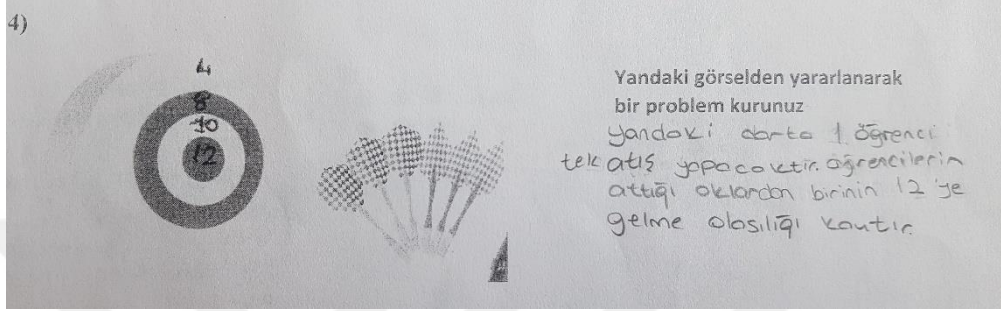 4)
4
8
10
12
Yandaki görselden yararlanarak
bir problem kurunuz
yandaki darta 1 öğrenci
tek atış yapacaktır. öğrencilerin
attığı oklardan birinin 12'ye
gelme olasılığı kaçtır.